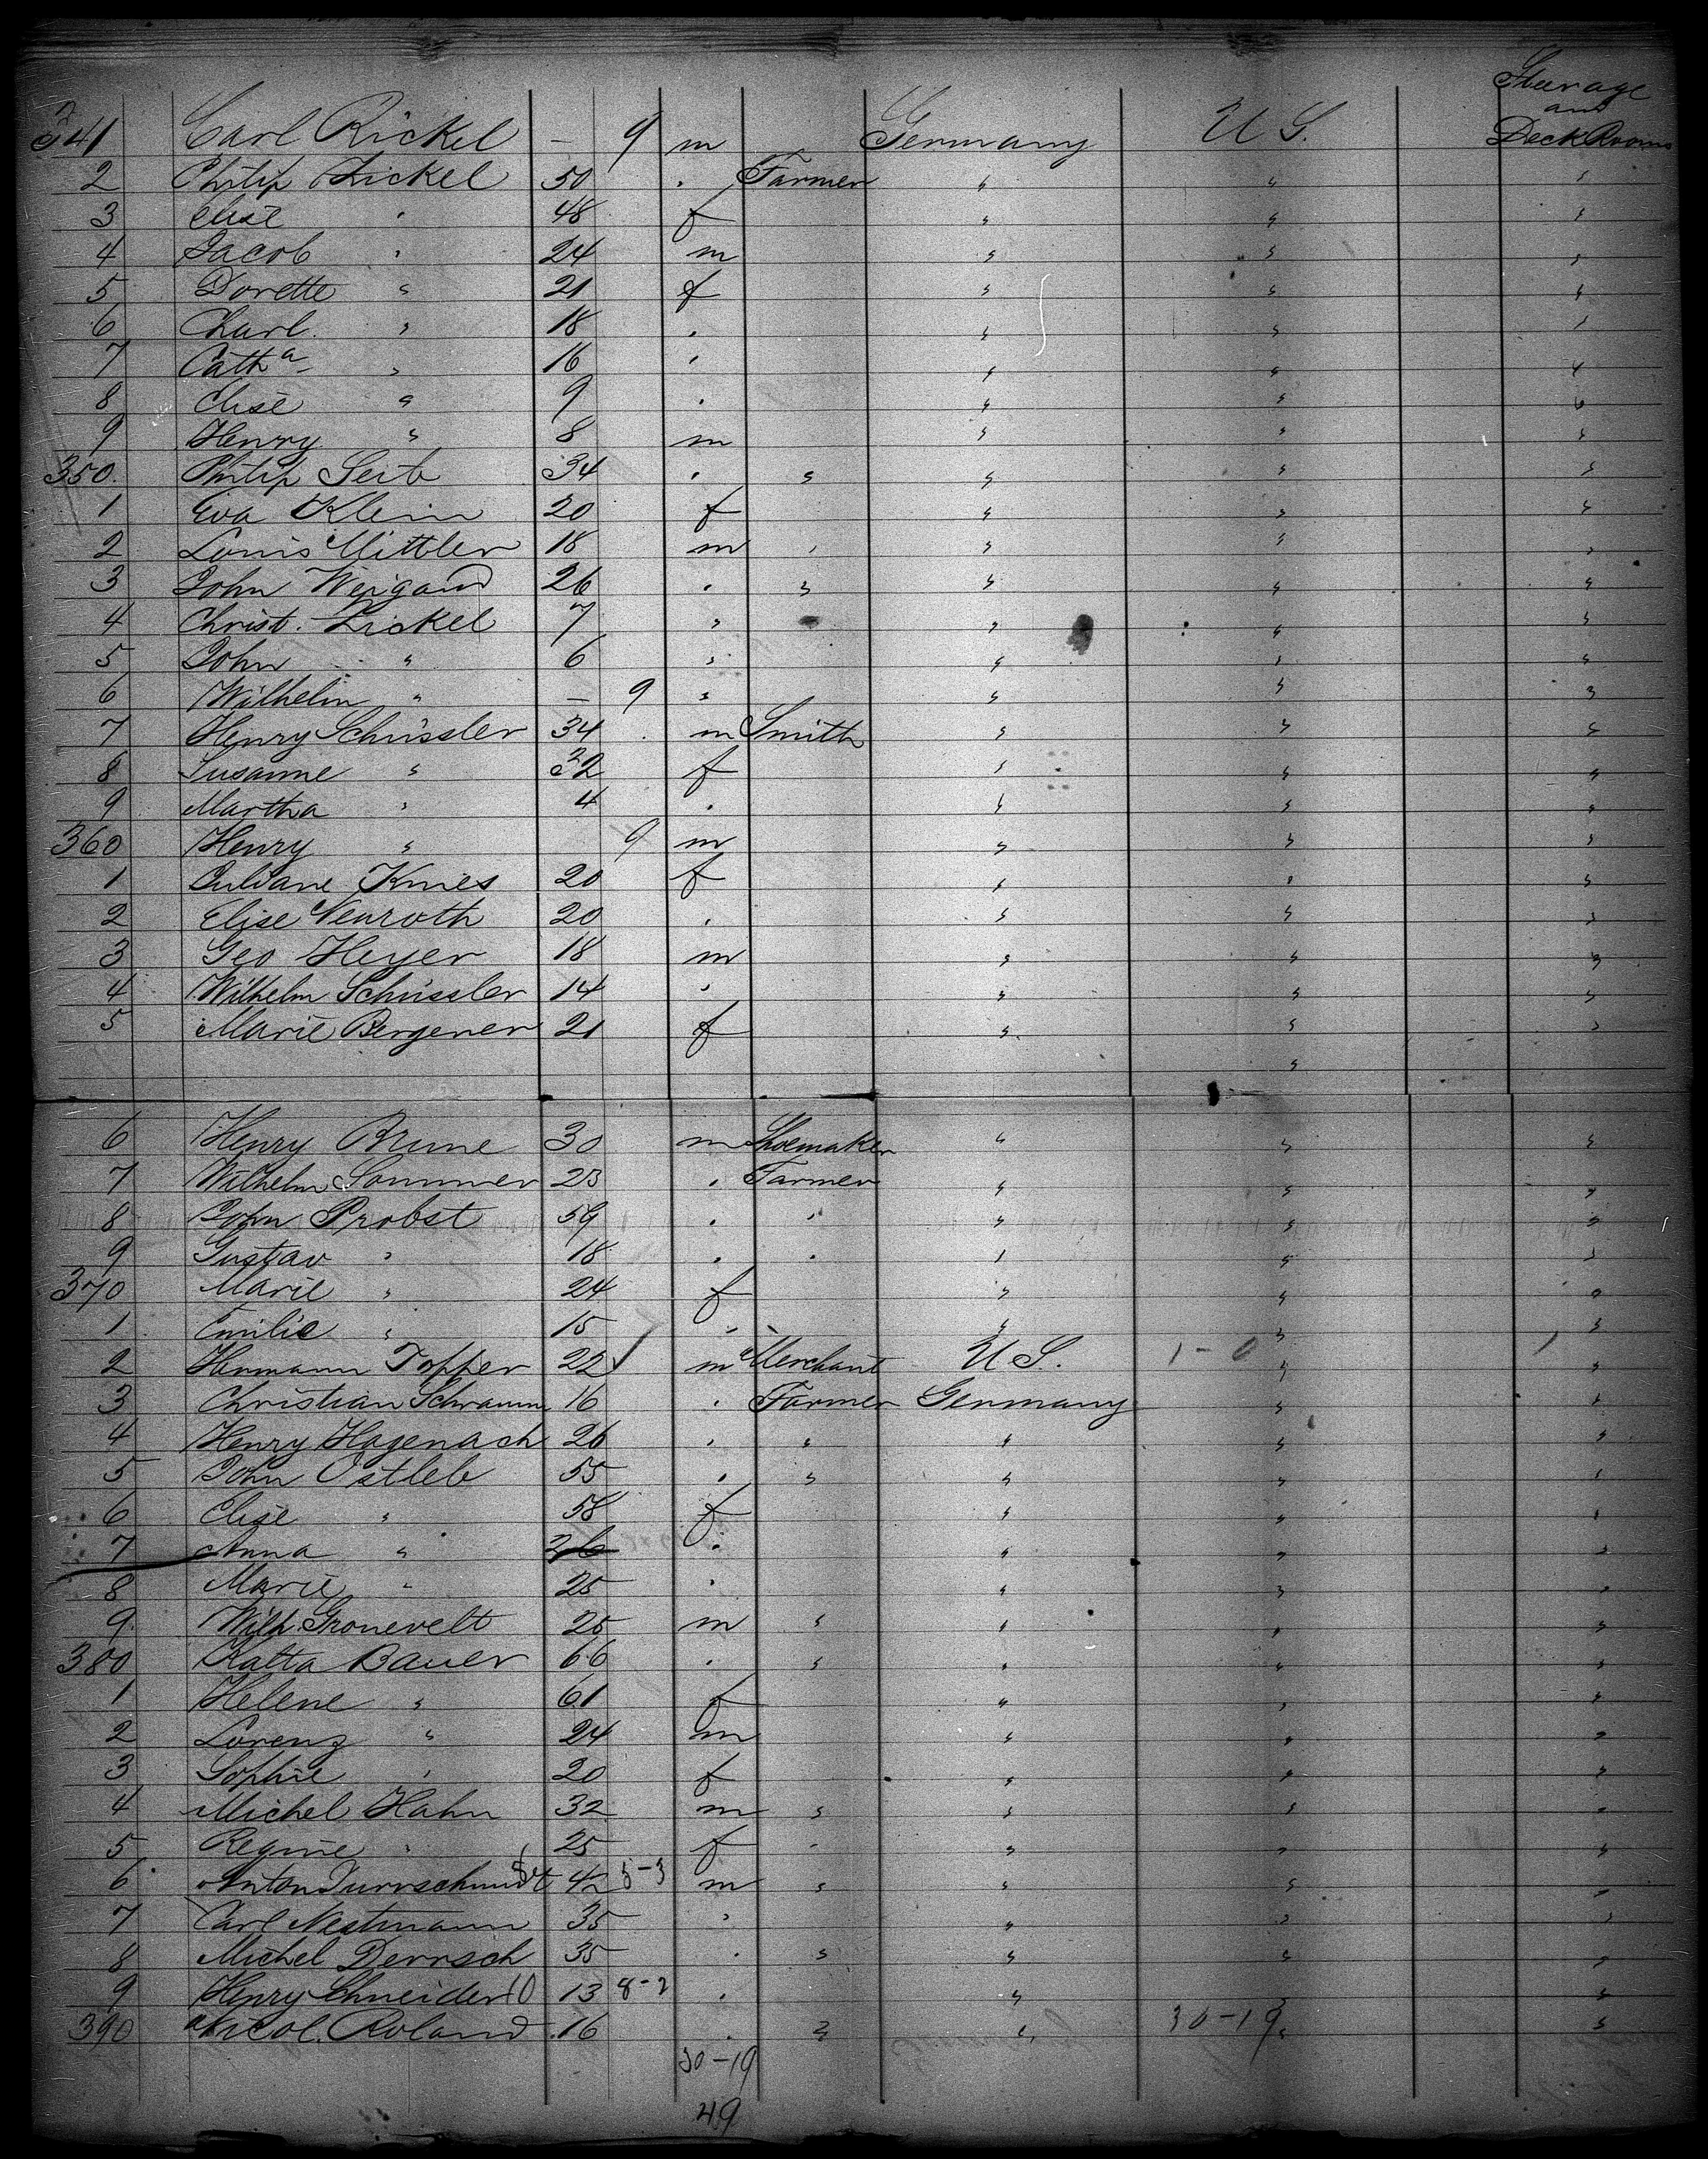 Steerage
and
Deck Rooms
341 Carl Rickel – 9 m Germany U S.
2 Philip Zickel 50 " Farmer " " "
3 Elise " 48 f " " "
4 Jacob " 24 m " " "
5 Dorette " 21 f " " "
6 Charl. " 18 " " " "
7 Cath a " 16 " " " "
8 Elise " 9 " " " "
9 Henry " 8 m " " "
350. Philip Seib 34 " " " " "
1 Eva Klein 20 f " " "
2 Louis Mittler 18 m " " " "
3 John Weigand 26 " " " " "
4 Christ. Zickel 7 " " " "
5 John " 6 " " " "
6 Wilhelm " – 9 " " " "
7 Henry Schüssler 34 m Smith " " "
8 Susanne " 32 f " " "
9 Martha " 4 " " " "
360 Henry " 9 m " " "
1 Juliane Knies 20 f " " "
2 Elise Neuroth 20 " " " "
3 Geo Heyer 18 m " " "
4 Wilhelm Schüssler 14 " " " "
5 Marie Bergener 21 f " " "
"
6 Henry Brune 30 m Shoemaker " " "
7 Wilhelm Sommer 23 " Farmer " " "
8 John Probst 59 " " " " "
9 Gustav " 18 " " " " "
370 Marie " 24 f " " "
1 Emilie " 15 " " " "
2 Hermann Topper 22 m Merchant U S. 1-0 " "
3 Christian Schramm 16 " Farmer Germany " "
4 Henry Hagenach 26 " " " " "
5 John Ostleb 55 " " " " "
6 Elise " 58 f " " "
7 Anna " 26 " " " "
8 Marie " 25 " " " "
9 Wilh. Gronevelt 25 m " " " "
380 Katta Bauer 66 " " " " "
1 Helene " 61 f " " "
2 Lorenz " 24 m " " "
3 Sophie " 20 f " " "
4 Michel Hahn 32 m " " " "
5 Regine " 25 f " " " "
6 Anton Durrschmidt 42 5-3 m " " " "
7 Carl Nestmann 35 " " " "
8 Michel Derrsch 35 " " " " "
9 Henry Schneider 10 13 8-2 " " " "
390 Nicol. Roland 16 " " " 30-19 " "
30-19
49